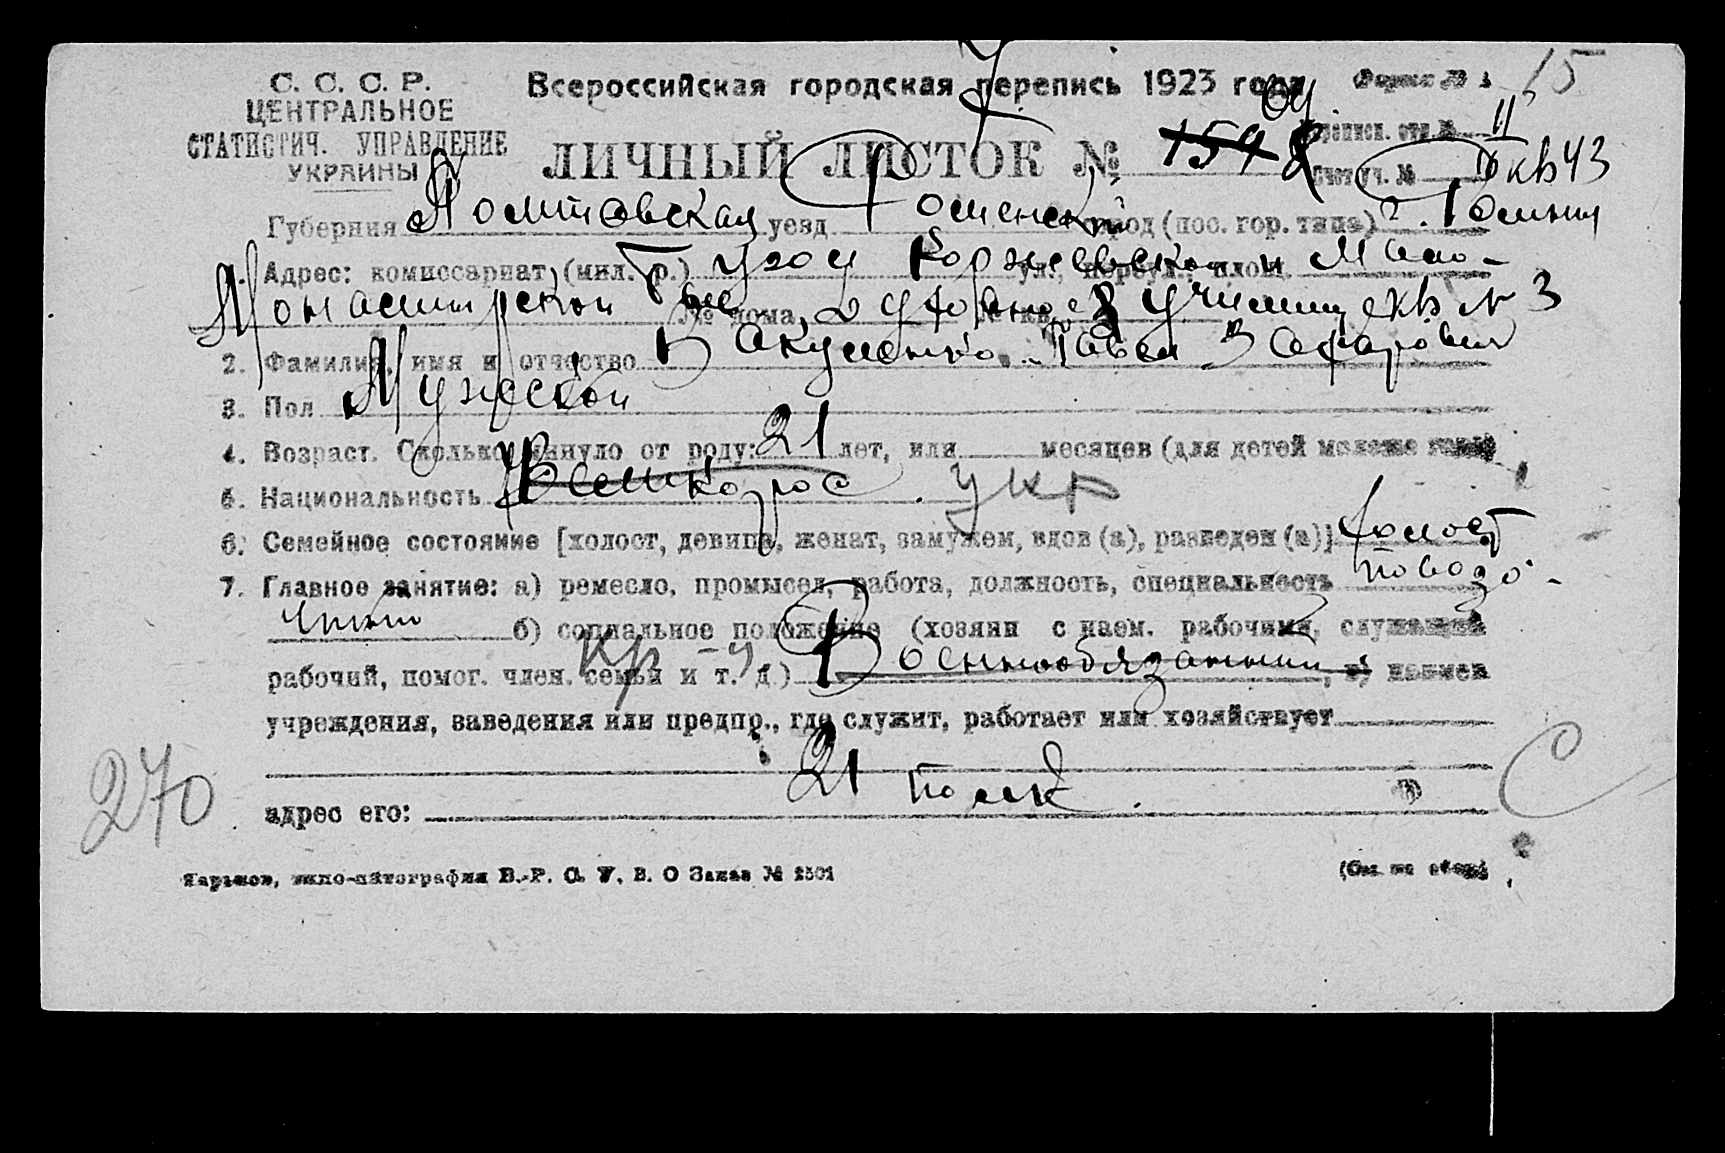 С. С. С. Р.
ЦЕНТРАЛЬНОЕ
СТАТИСТИЧ. УПРАВЛЕНИЕ
УКРАИНЫ
Всероссийская городская перепись 1923 года
Форма № 1 15
ЛИЧНЫЙ ЛИСТОК № 1598
Переписн. отд. № II
Счетч. № кв 43
Губерния Полтавская уезд Роменский город (пос. гор. типа) г. Ромны
1. Адрес: комиссариат, (мил. р.) угол Коржевской и Мало- ул., переул., площ.
Монастирской № дома, № кв. кв № 3
2. Фамилия, имя и отчество Вакуленко Павел Захарович
3. Пол Мужской
4. Возраст. Сколько минуло от роду: 21 лет, или месяцев (для детей моложе года)
5. Национальность Великорос. укр
6. Семейное состояние [холост, девица, женат, замужем, вдов (а), разведен (а)] холост
7. Главное занятие: а) ремесло, промысел, работа, должность, специальность
б) социальное положение (хозяин с наем. рабочими, служащий
рабочий, помог. член. семьи и т. д.) Военнообязанный, в) наимен
кр-н
учреждения, заведения или предпр., где служит, работает или хозяйствует
21 полк.
адрес его:
270
С
Харьков, В. О Заказ № 2501
(См. на обор.)